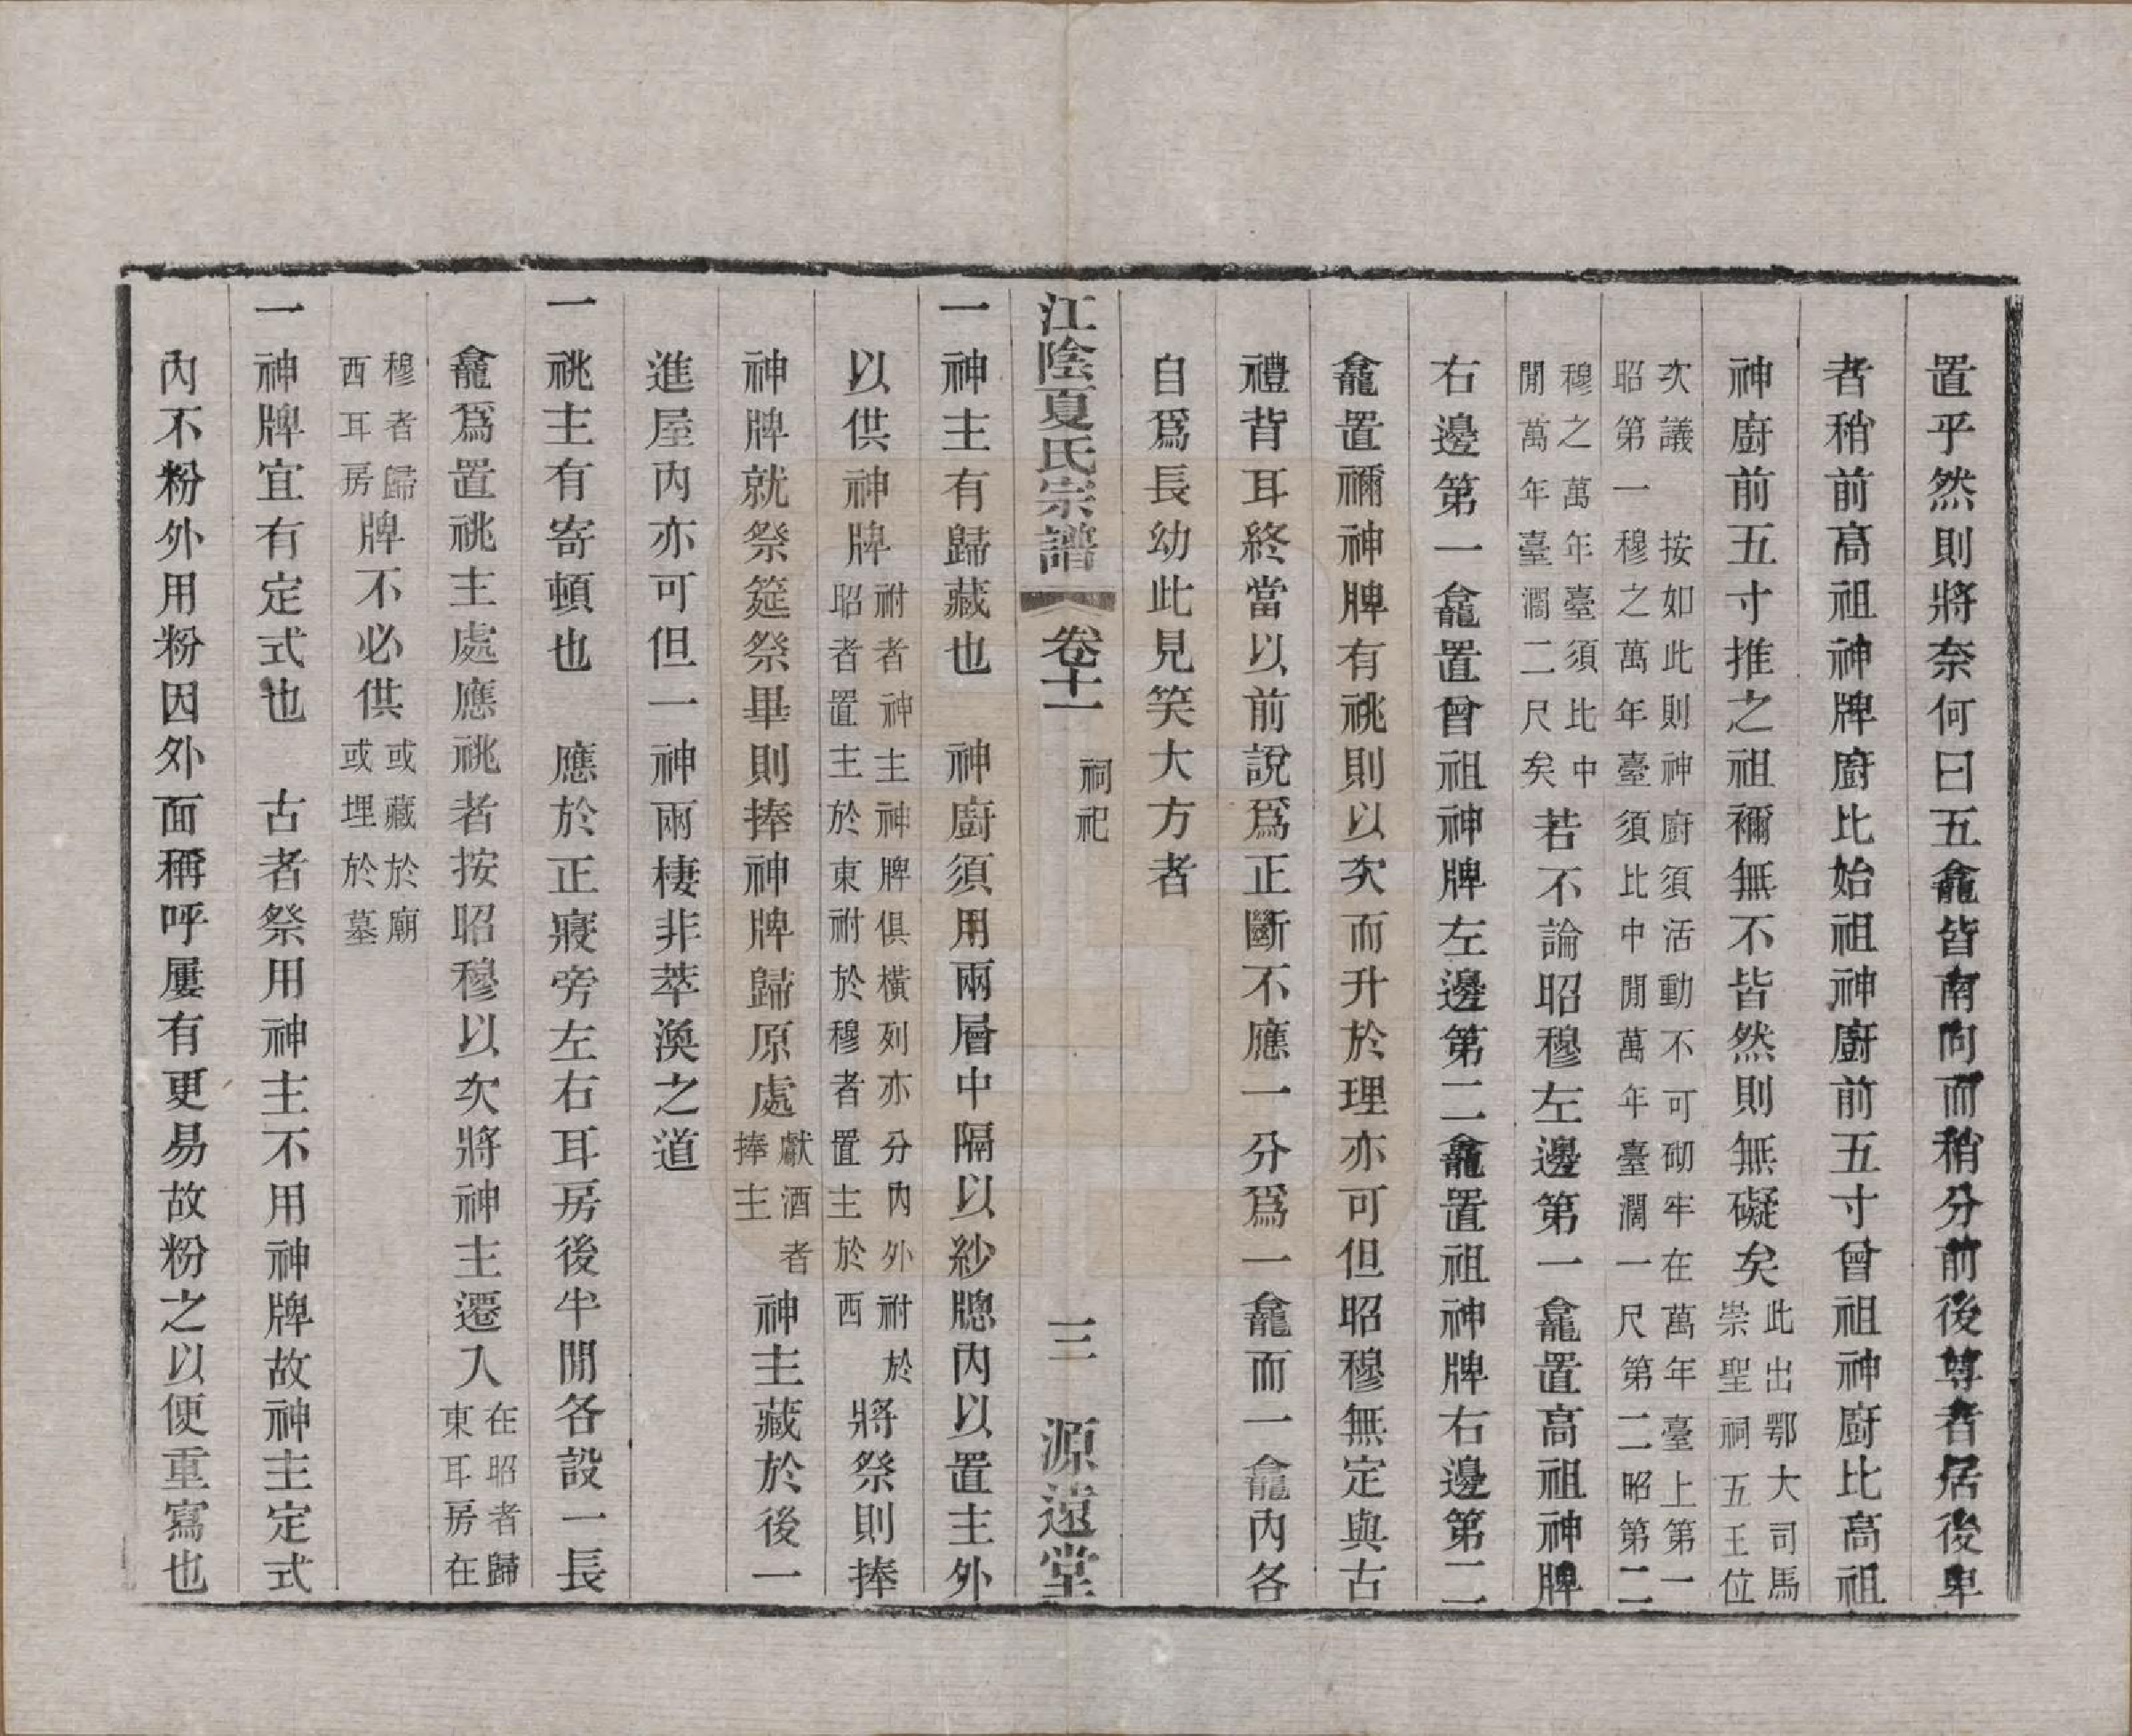 置乎然則將奈何曰五龕皆南向而稍分前後尊者居後卑
者稍前高祖神牌廚比始祖神廚前五寸曾祖神廚比高祖
神廚前五寸推之祖禰無不皆然則無礙矣此出鄂大司馬崇聖祠五王位
次議　按如此則神廚須活動不可砌牢在萬年臺上第一昭第一穆之萬年臺須比中閒萬年臺濶一尺第二昭第二
穆之萬年臺須比中閒萬年臺濶二尺矣若不論昭穆左邊第一龕置高祖神牌
右邊第一龕置曾祖神牌左邊第二龕置祖神牌右邊第二
龕置禰神牌有祧則以次而升於理亦可但昭穆無定與古
禮背耳終當以前說爲正斷不應一分爲一龕而一龕內各
自爲長幼此見笑大方者
江陰夏氏宗譜　卷十一　祠祀　三　源遠堂
一神主有歸藏也　神廚須用兩層中隔以紗牎內以置主外
以供神牌祔者神主神牌俱橫列亦分內外祔於昭者置主於東祔於穆者置主於西將祭則捧
神牌就祭筵祭畢則捧神牌歸原處獻酒者捧主神主藏於後一
進屋內亦可但一神兩棲非萃渙之道
一祧主有寄頓也　應於正寢旁左右耳房後半閒各設一長
龕爲置祧主處應祧者按昭穆以次將神主遷入在昭者歸東耳房在
穆者歸西耳房牌不必供或藏於廟或埋於墓
一神牌宜有定式也　古者祭用神主不用神牌故神主定式
內不粉外用粉因外面稱呼屢有更易故粉之以便重寫也